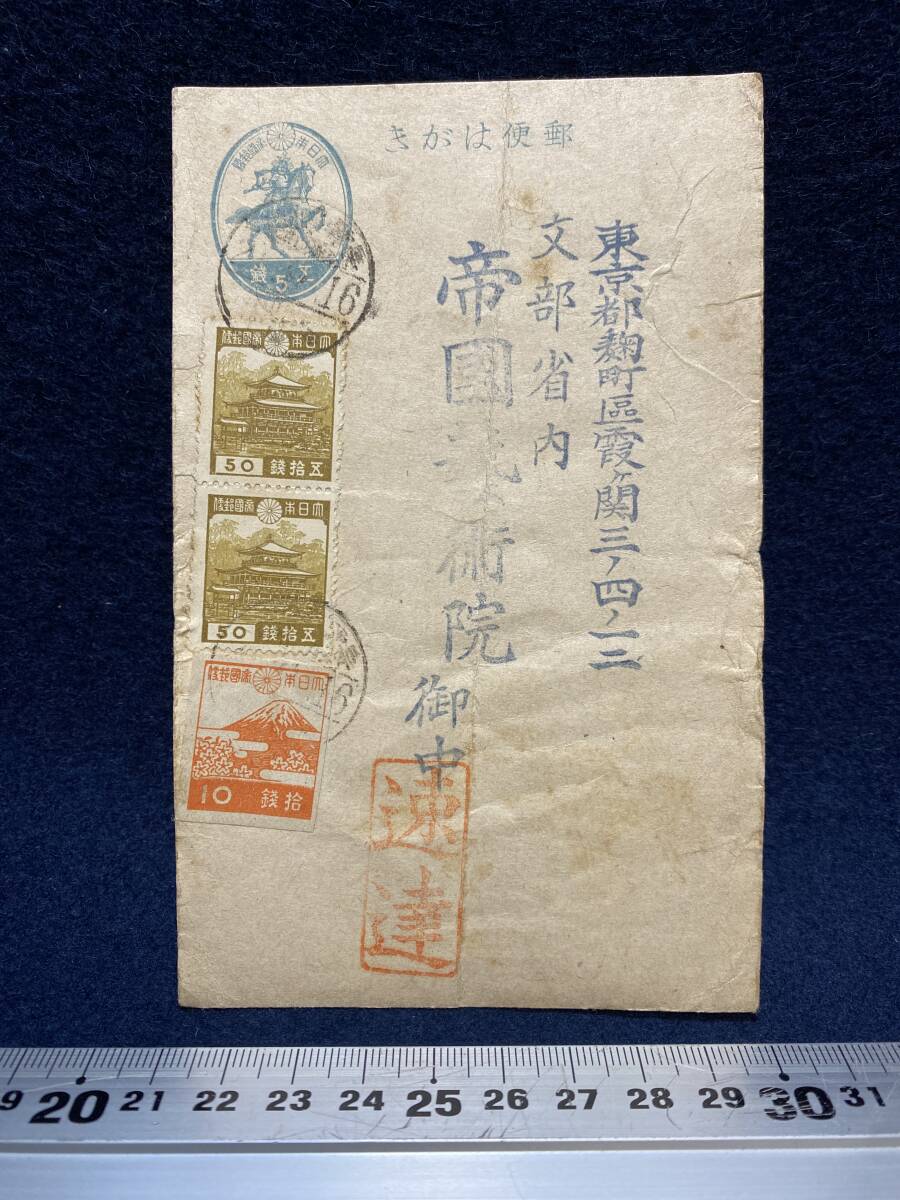 郵便はがき
大日本帝國郵便
五銭
5
16
東京都麹町區霞ヶ関三ノ四ノ二
文部省内
帝國藝術院御中
大日本帝國郵便
50
五拾錢
大日本帝國郵便
50
五拾錢
大日本帝國郵便
10
拾錢
速達
19 20 21 22 23 24 25 26 27 28 29 30 31